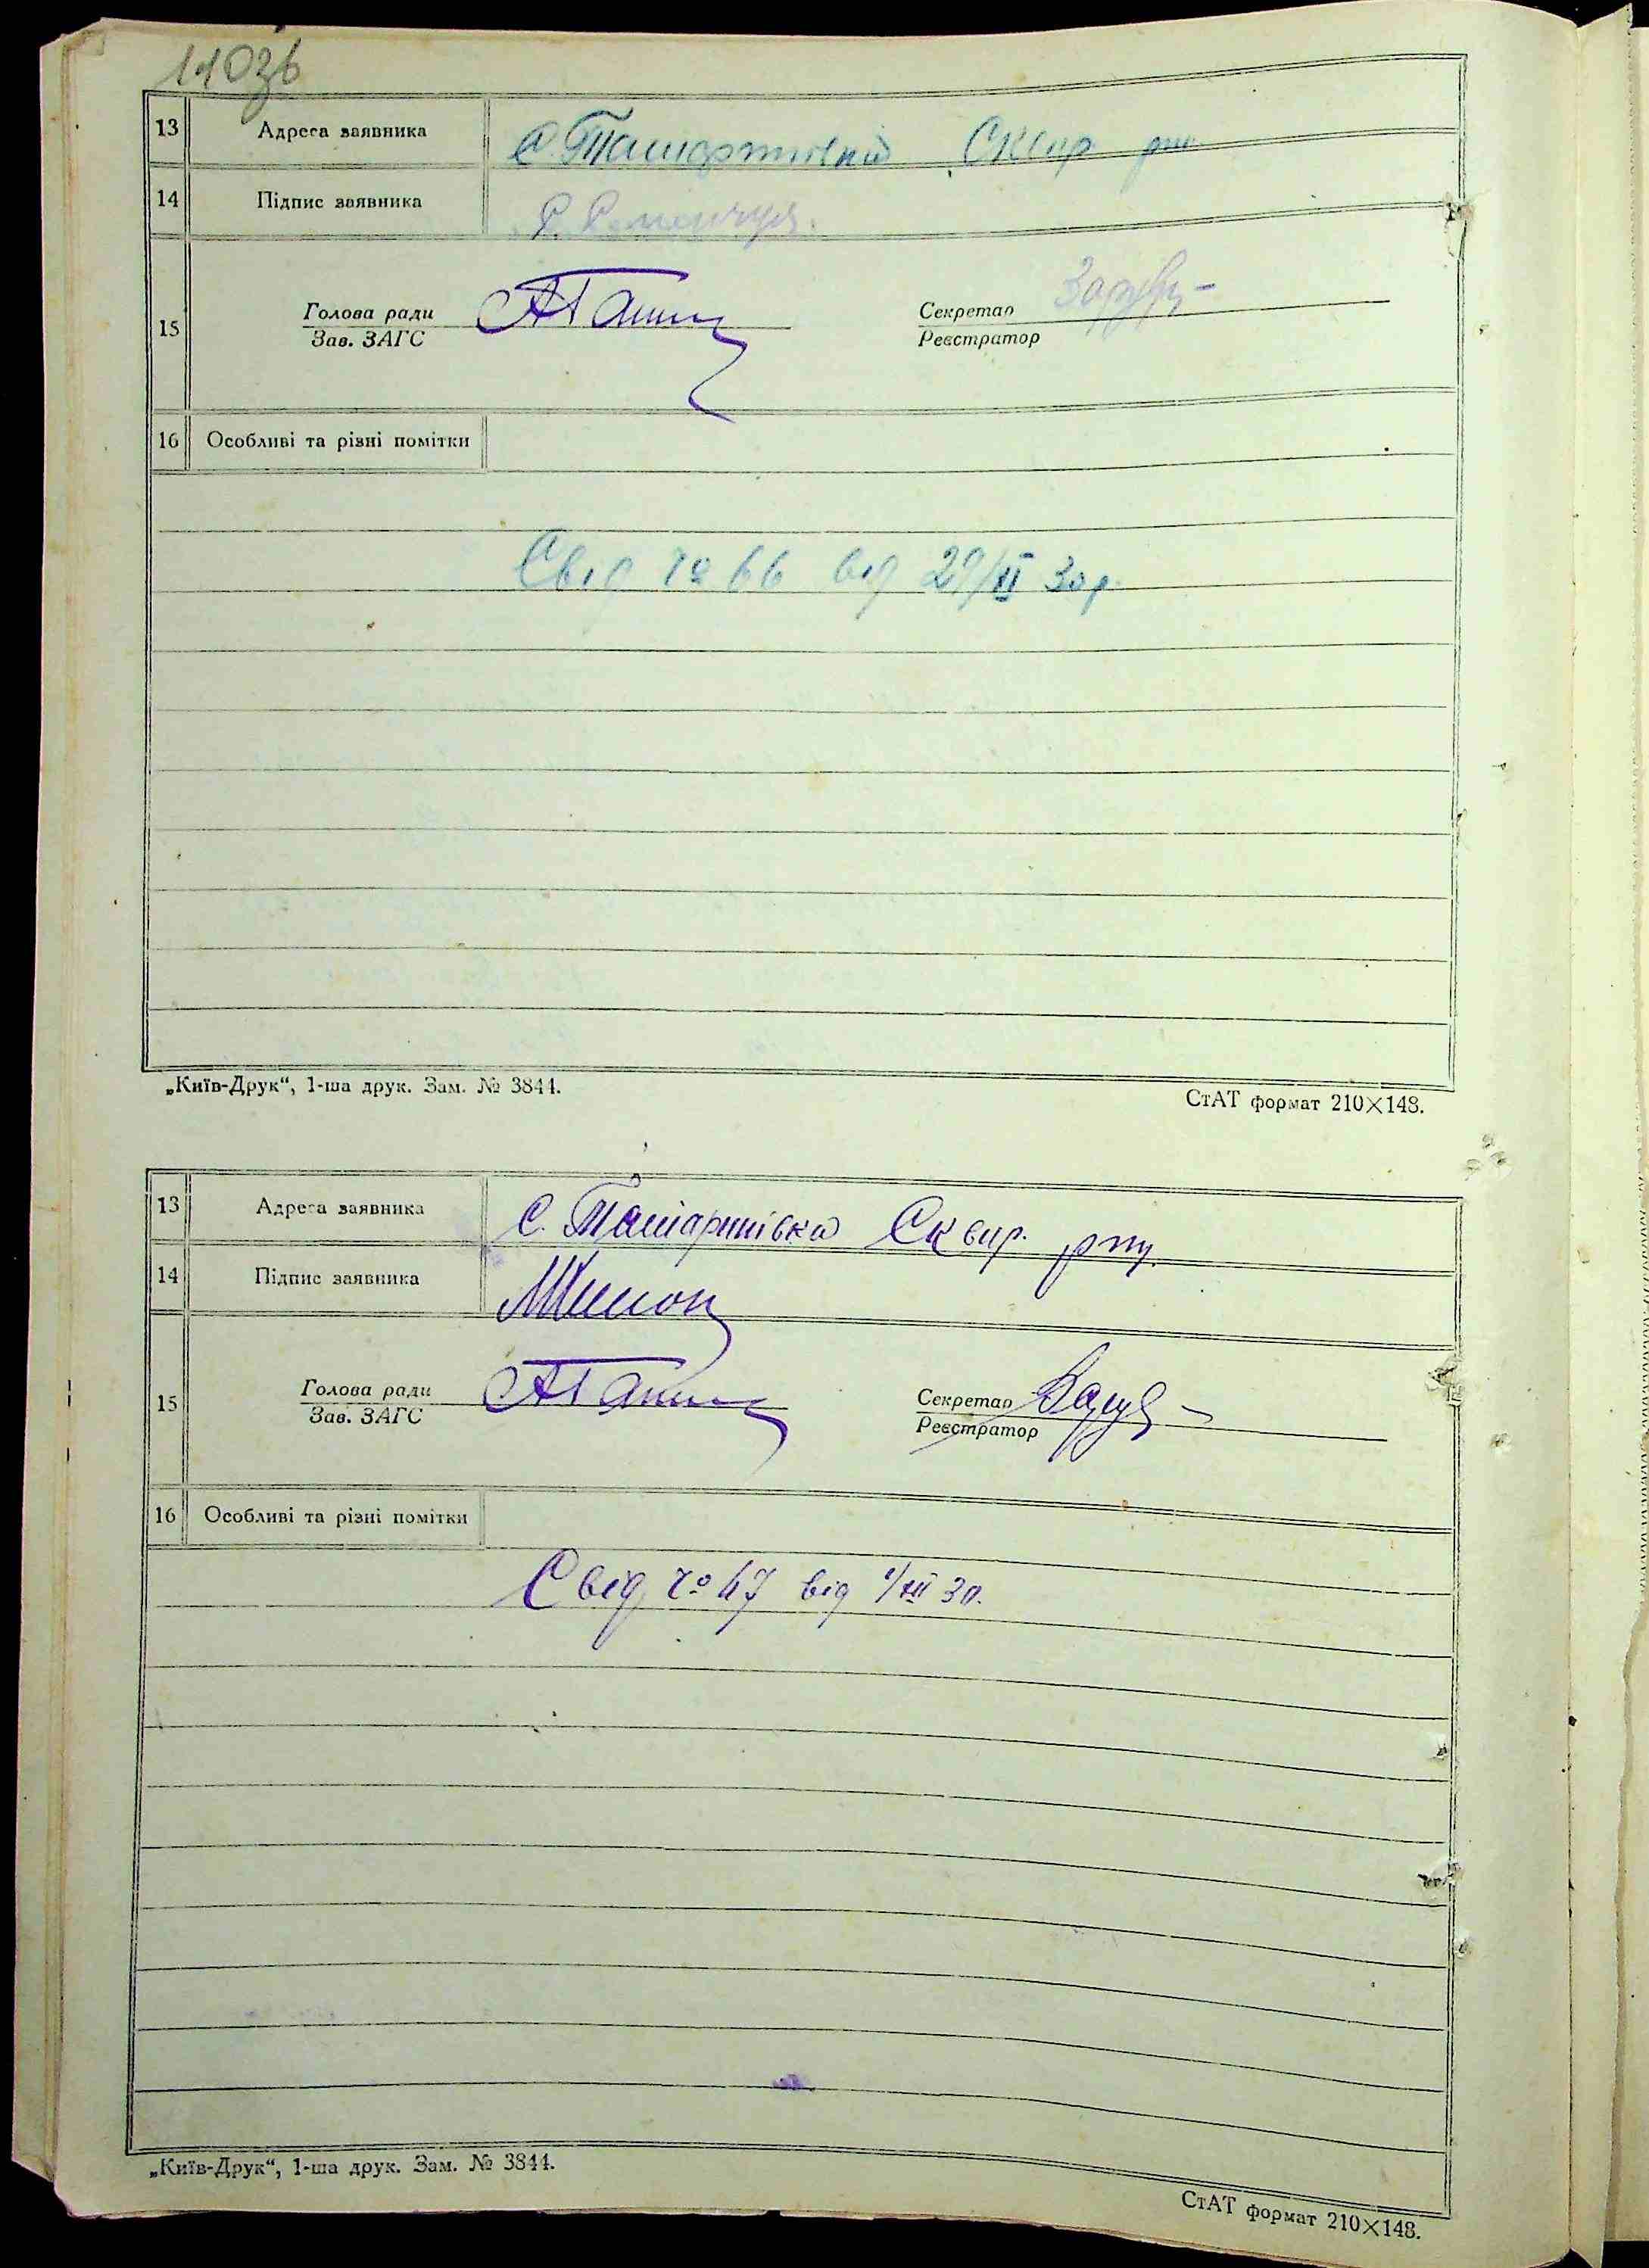 110зв
13 Адреса заявника С. Татаринівка Сквир. р-ну
14 Підпис заявника
15 Голова ради
Зав. ЗАГС
Секретар
Реєстратор
16 Особливі та різні помітки
Свід № 66 від 29/XI 30 р.
„Київ-Друк“, 1-ша друк. Зам. № 3844.
СтАТ формат 210×148.
13 Адреса заявника С. Татаринівка Сквир. р-ну.
14 Підпис заявника
15 Голова ради
Зав. ЗАГС
Секретар
Реєстратор
16 Особливі та різні помітки
Свід № 67 від 1/XII 30.
„Київ-Друк“, 1-ша друк. Зам. № 3844.
СтАТ формат 210×148.